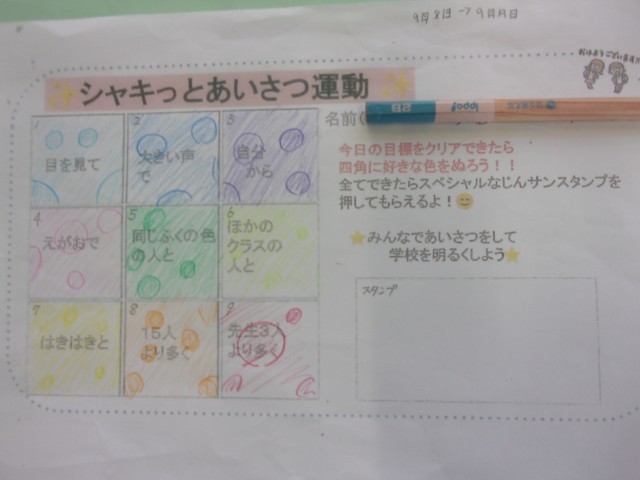 9月8日→9月19日
おはようございます!!
シャキっとあいさつ運動
名前(
今日の目標をクリアできたら
四角に好きな色をぬろう！！
全てできたらスペシャルなじんサンスタンプを
押してもらえるよ！
みんなであいさつをして
学校を明るくしよう
スタンプ
1
目を見て
2
大きい声
で
3
自分
から
4
えがおで
5
同じふくの色
の人と
6
ほかの
クラスの
人と
7
はきはきと
8
15人
より多く
9
先生3人
より多く
2B
ippo!